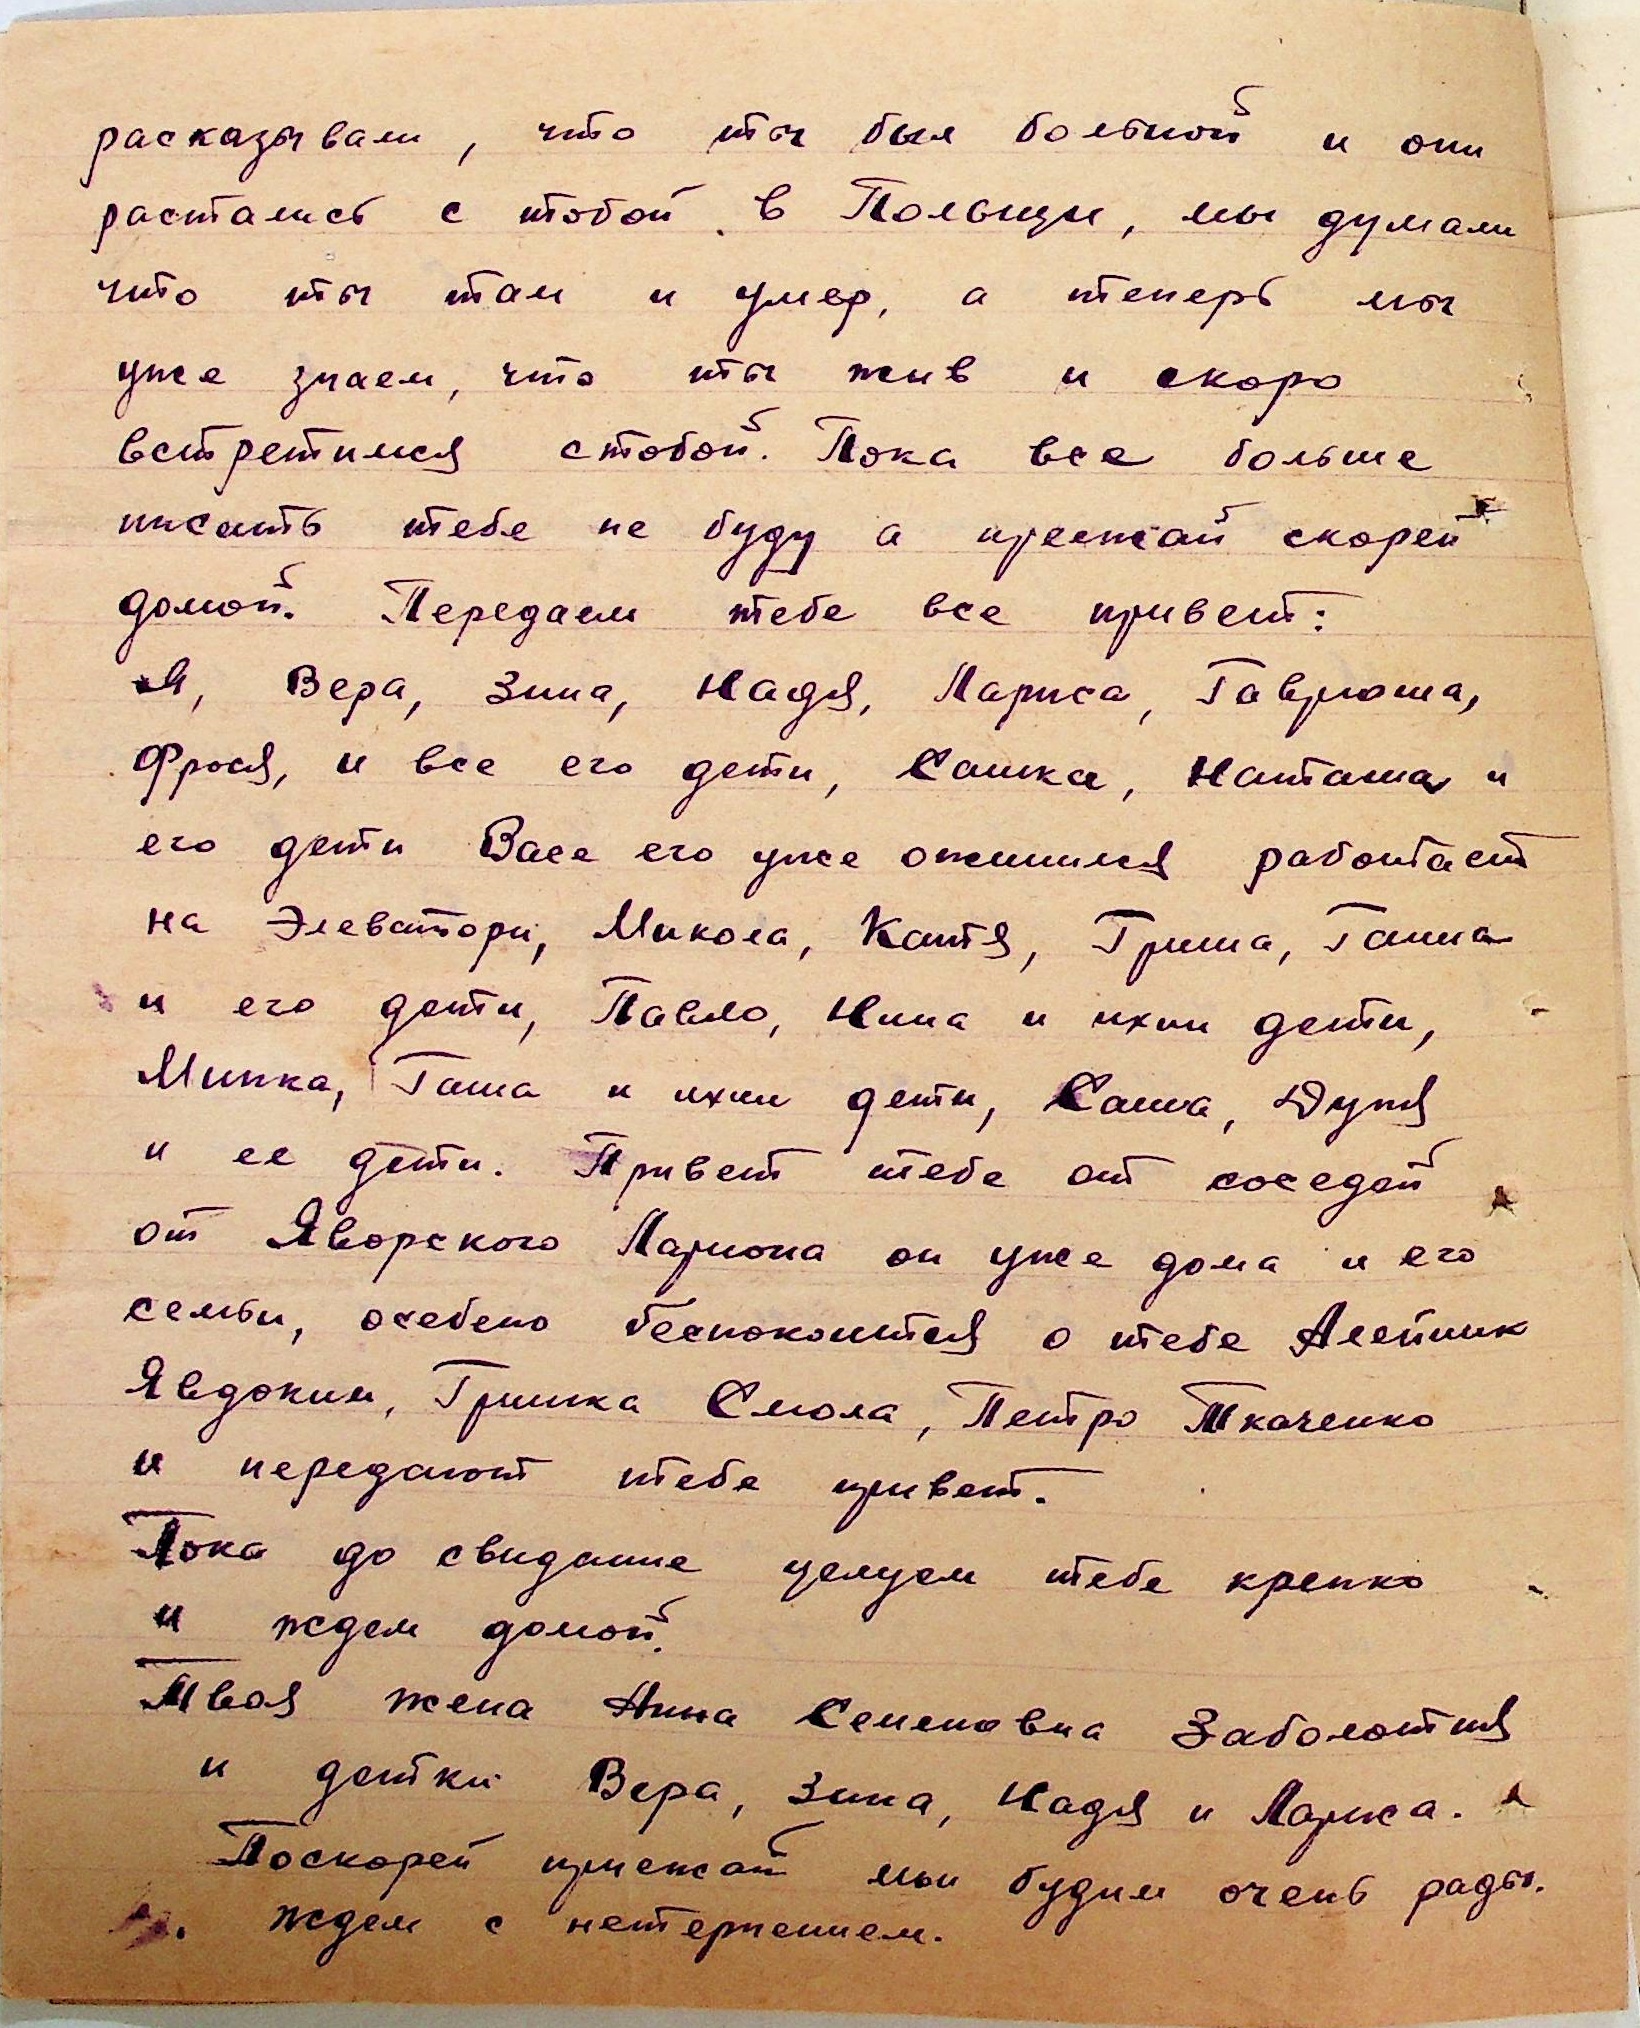 расказывали, что ты был больной и они
растались с тобой в Польщи, мы думали
что ты там и умер, а теперь мы
уже знаем, что ты жив и скоро
встретимся стобой. Пока все больше
писать тебе не буду а преежай скорей
домой. Передаем тебе все привет:
Я, Вера, Зина, Надя, Лариса, Гаврюша,
Фрося, и все его дети, Сашка, Наташа и
его дети Вася его уже оженился работает
на Элеватори, Микола, Катя, Гриша, Ганна
и его дети, Павло, Нина и ихни дети,
Минка, Гаша и ихни дети, Саша, Дуня
и ее дети. Привет тебе от соседей
от Яворского Лариона он уже дома и его
семьи, особено беспокоится о тебе Алейник
Явдоким, Гришка Смола, Петро Ткаченко
и передают тебе привет.
Пока до свидание целуем тебе крепко
и ждем домой.
Твоя жена Анна Семеновна Заболотня
и детки Вера, Зина, Надя и Лариса.
Поскорей приежай мы будим очень рады.
ждем с нетерпением.